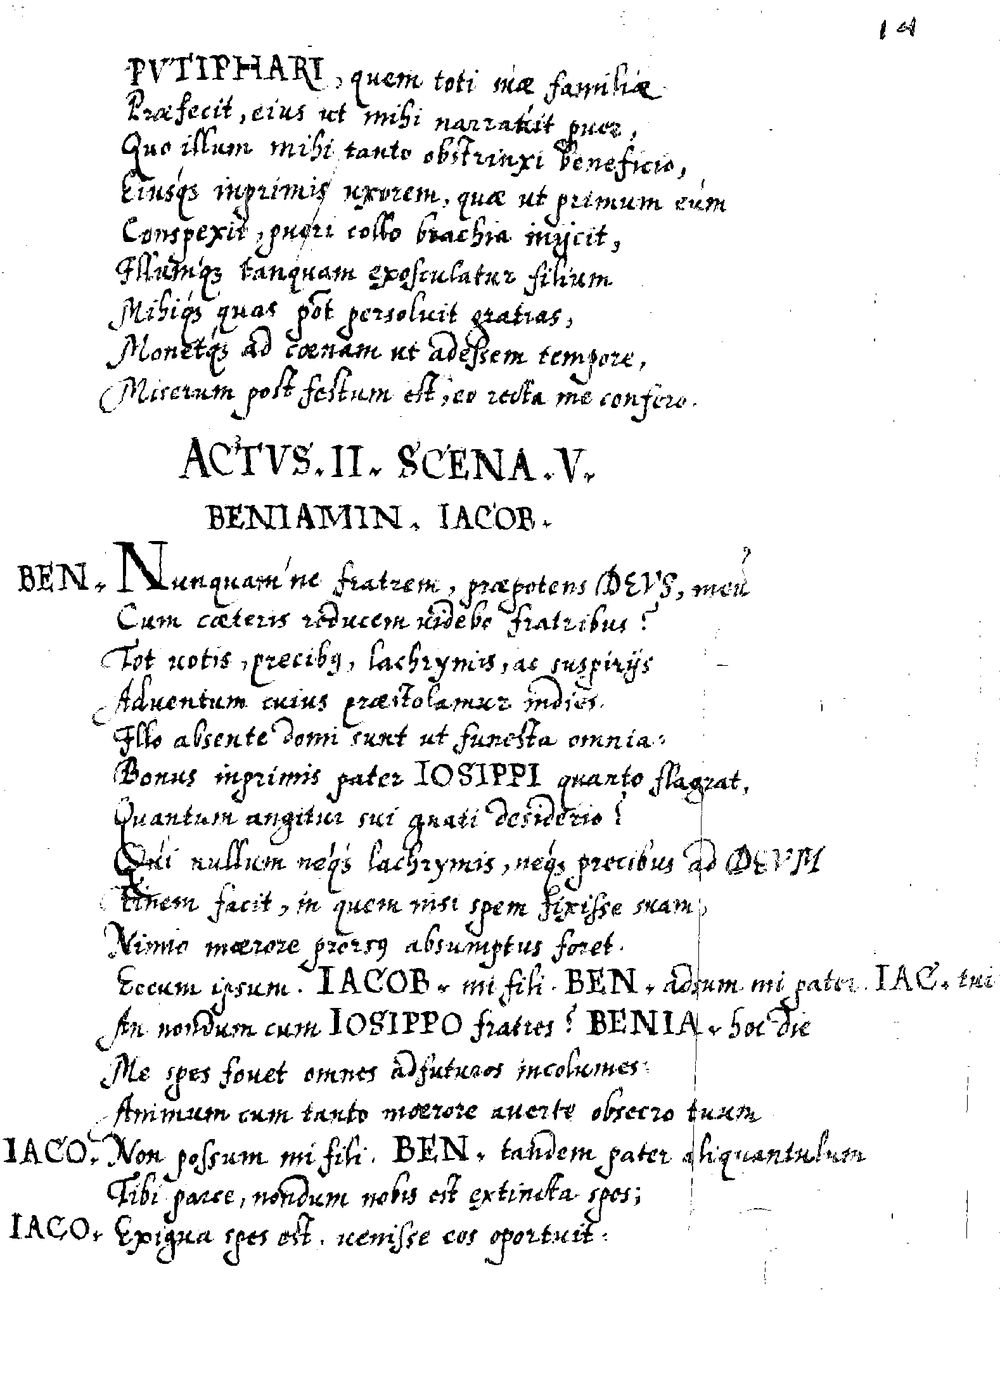 14
PVTIPHARI, quem toti meæ familiæ
Præfecit, eius ut mihi narrauit puer,
Quo illum mihi tanto obstrinxi beneficio,
Eiusq́ꝫ inprimis uxorem, quæ ut primum eúm
Conspexit, pueri collo brachia inijcit,
Illumq́ꝫ tanquam exosculatur filium
Mihiq́ꝫ quas põt persoluit gratias,
Monetq́ꝫ ad cœnam ut adessem tempore,
Miserum post festum est, eo recta me confero.
ACTVS. II. SCENA. V.
BENIAMIN. IACOB.
BEN. Nunquam'ne fratrem, præpotens DEVS, meũ
Cum cæteris reducem uidebo fratribus?
Tot uotis, precibꝰ, lachrymis, ac suspirijs
Aduentum cuius præstolamur indies.
Illo absente domi sunt ut funesta omnia:
Bonus inprimis pater IOSIPPI quanto flagrat,
Quantum angitur sui gnati desiderio!
Qui nullum neq́ꝫ lachrymis, neq́ꝫ precibus ad DEVM
Finem facit, in quem nisi spem fixisse suam,
Nimio mœrore prorsꝰ absumptus foret.
Eccum ipsum. IACOB. mi fili. BEN. adsum mi pater. IAC. tui
An nondum cum IOSIPPO fratres? BENIA. hoc die
Me spes fouet omnes adfuturos incolumes:
Animum cum tanto mœrore auerte obsecro tuum
IACO. Non possum mi fili. BEN. tandem pater aliquantulum
Tibi parce, nondum nobis est extincta spes;
IACO. Exigua spes est. uenisse eos oportuit.